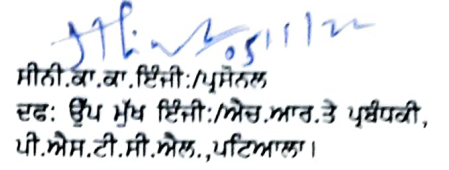 05/11/22
ਸੀਨੀ.ਕਾ.ਕਾ.ਇੰਜੀ:/ਪ੍ਰਸੋਨਲ
ਦਫ: ਉੱਪ ਮੁੱਖ ਇੰਜੀ:/ਐਚ.ਆਰ.ਤੇ ਪ੍ਰਬੰਧਕੀ,
ਪੀ.ਐਸ.ਟੀ.ਸੀ.ਐਲ.,ਪਟਿਆਲਾ।